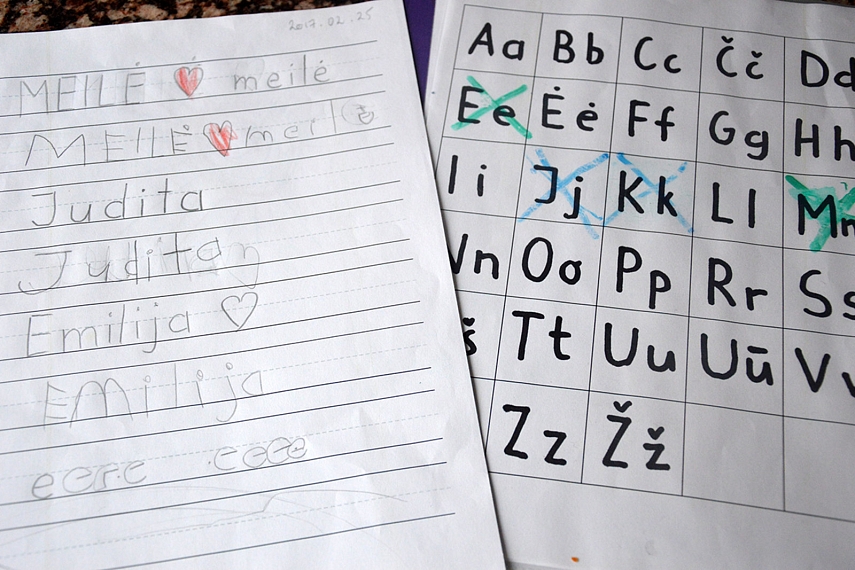 2017.02.25
MEILĖ meilė
MEILĖ meilė
Judita
Judita
Emilija
EMilija
eere eeee
Aa Bb Cc Čč Dd
Ee Ėė Ff Gg Hh
Ii Jj Kk Ll Mm
Nn Oo Pp Rr Ss
š Tt Uu Uū Vv
Zz Žž